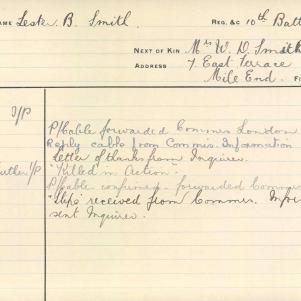 AME Lester B. Smith. REG. &C 10th Batt
NEXT OF KIN Mrs W. D. Smith
ADDRESS 7 East Terrace
Mile End. F
I/P
P/Cable forwarded Commrs London
Reply cable from Commis. Information
Letter of thanks from Inquirer.
"Killed in Action.
P/Cable confirmed - forwarded Commrs
received from Commr. Infor
sent Inquirer.